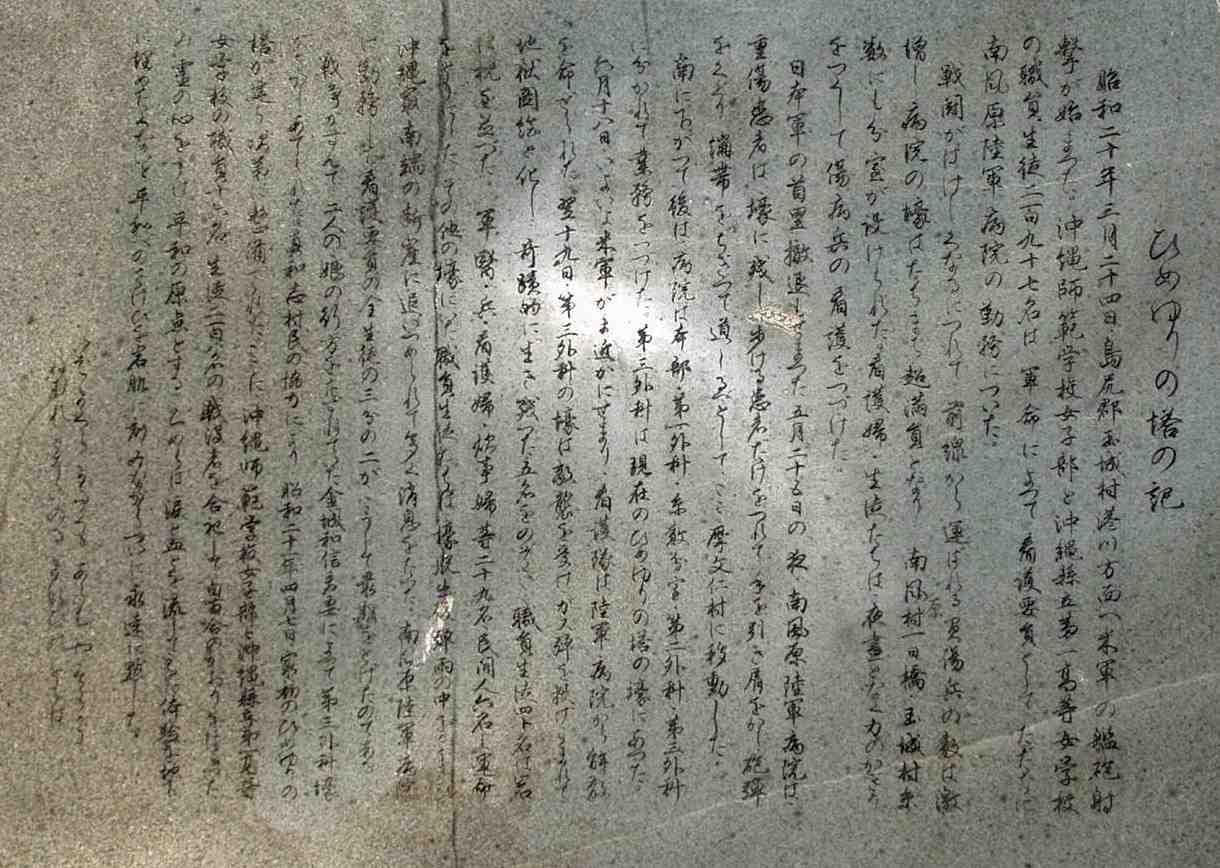 ひめゆりの塔の記
昭和二十年三月二十四日島尻郡玉城村港川方面へ米軍の艦砲射
撃が始まった。沖縄師範学校女子部と沖縄縣立第一高等女学校
の職員生徒二百九十七名は軍命によって看護要員としてただちに
南風原陸軍病院の勤務についた。
戦闘がはげしくなるにつれて前線から運ばれる負傷兵の数は激
増し病院の壕はたちまち超満員となり南風原村一日橋玉城村糸
数にも分室が設けられた。看護婦・生徒たちは夜昼となく力のかぎり
をつくして傷病兵の看護をつづけた。
日本軍の首里撤退もせまった五月二十五日の夜南風原陸軍病院は
重傷患者は壕に残し歩ける患者だけをつれて手を引き肩をかし砲弾
をくぐり繃帯をちぎって道しるべとしてここ摩文仁村に移動した。
南にさがって後は病院は本部・第一外科・糸数分室・第二外科・第三外科
に分かれて業務をつづけた。第三外科は現在のひめゆりの塔の壕にあった。
六月十八日いよいよ米軍がま近かにせまり、看護隊は陸軍病院から解散
を命ぜられた。翌十九日第三外科の壕は敵襲を受けガス弾を投げこまれて
地獄図絵と化し奇蹟的に生き残った五名をのぞき職員生徒四十名は岩
に枕を並べた。軍医・兵・看護婦・炊事婦等二十九名民間人六名も運命
をともにした。その他の壕にいた職員生徒たちは壕脱出後弾雨の中を
沖縄最南端の断崖に追いつめられて多く消息をたった。南風原陸軍病院
に勤務した看護要員の全生徒の三分の二がこうして最期をとげたのである
戦争がすんで二人の娘の行方をたずねていた金城和信夫妻によって第三外科壕
真和志村民の協力により昭和二十一年四月七日最初のひめゆりの
塔が建ち次第に整備された。沖縄師範学校女子部と沖縄縣立第一高等
女学校の職員十六名生徒二百
平和の原点とする
平和への
永遠に黙した。